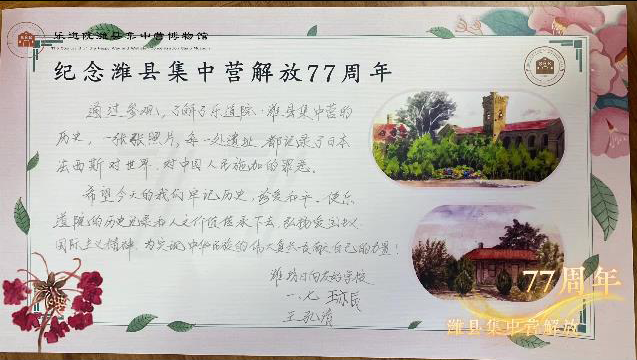 乐道院潍县集中营博物馆
纪念潍县集中营解放77周年
通过参观，了解了乐道院·潍县集中营的
历史，一张张照片，每一处遗址，都记录了日本
法西斯对世界，对中国人民施加的罪恶。
希望今天的我们牢记历史，珍爱和平，使乐
道院的历史史录和人文价值传承下去，弘扬爱国主义
国际主义精神，为实现中华民族的伟大复兴贡献自己的力量！
潍坊日向友好学校
一.七
77周年
潍县集中营解放